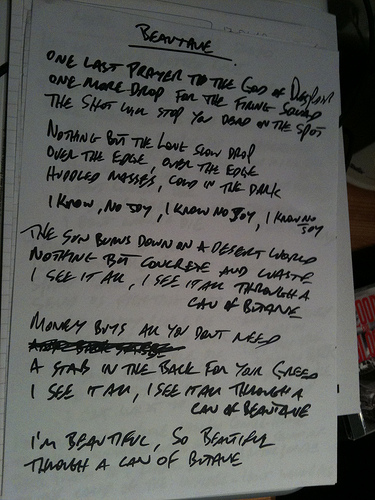 BEAUTANE
ONE LAST PRAYER TO THE GOD OF DESPAIR
ONE MORE DROP FOR THE FIRING SQUAD
THE SHOT WILL STOP YOU DEAD ON THE SPOT
NOTHING BUT THE LONG SLOW DROP
OVER THE EDGE, OVER THE EDGE
HUDDLED MASSES, COLD IN THE DARK
I KNOW, NO JOY, I KNOW NO JOY, I KNOW NO
JOY
THE SUN BURNS DOWN ON A DESERT WORLD
NOTHING BUT CONCRETE AND WASTE
I SEE IT ALL, I SEE IT ALL THROUGH A
CAN OF BUTANE
MONEY BUYS ALL YOU DONT NEED
A STAB IN THE BACK FOR YOUR GREED
I SEE IT ALL, I SEE IT ALL THROUGH A
CAN OF BEAUTANE
I'M BEAUTIFUL, SO BEAUTIFUL
THROUGH A CAN OF BUTANE